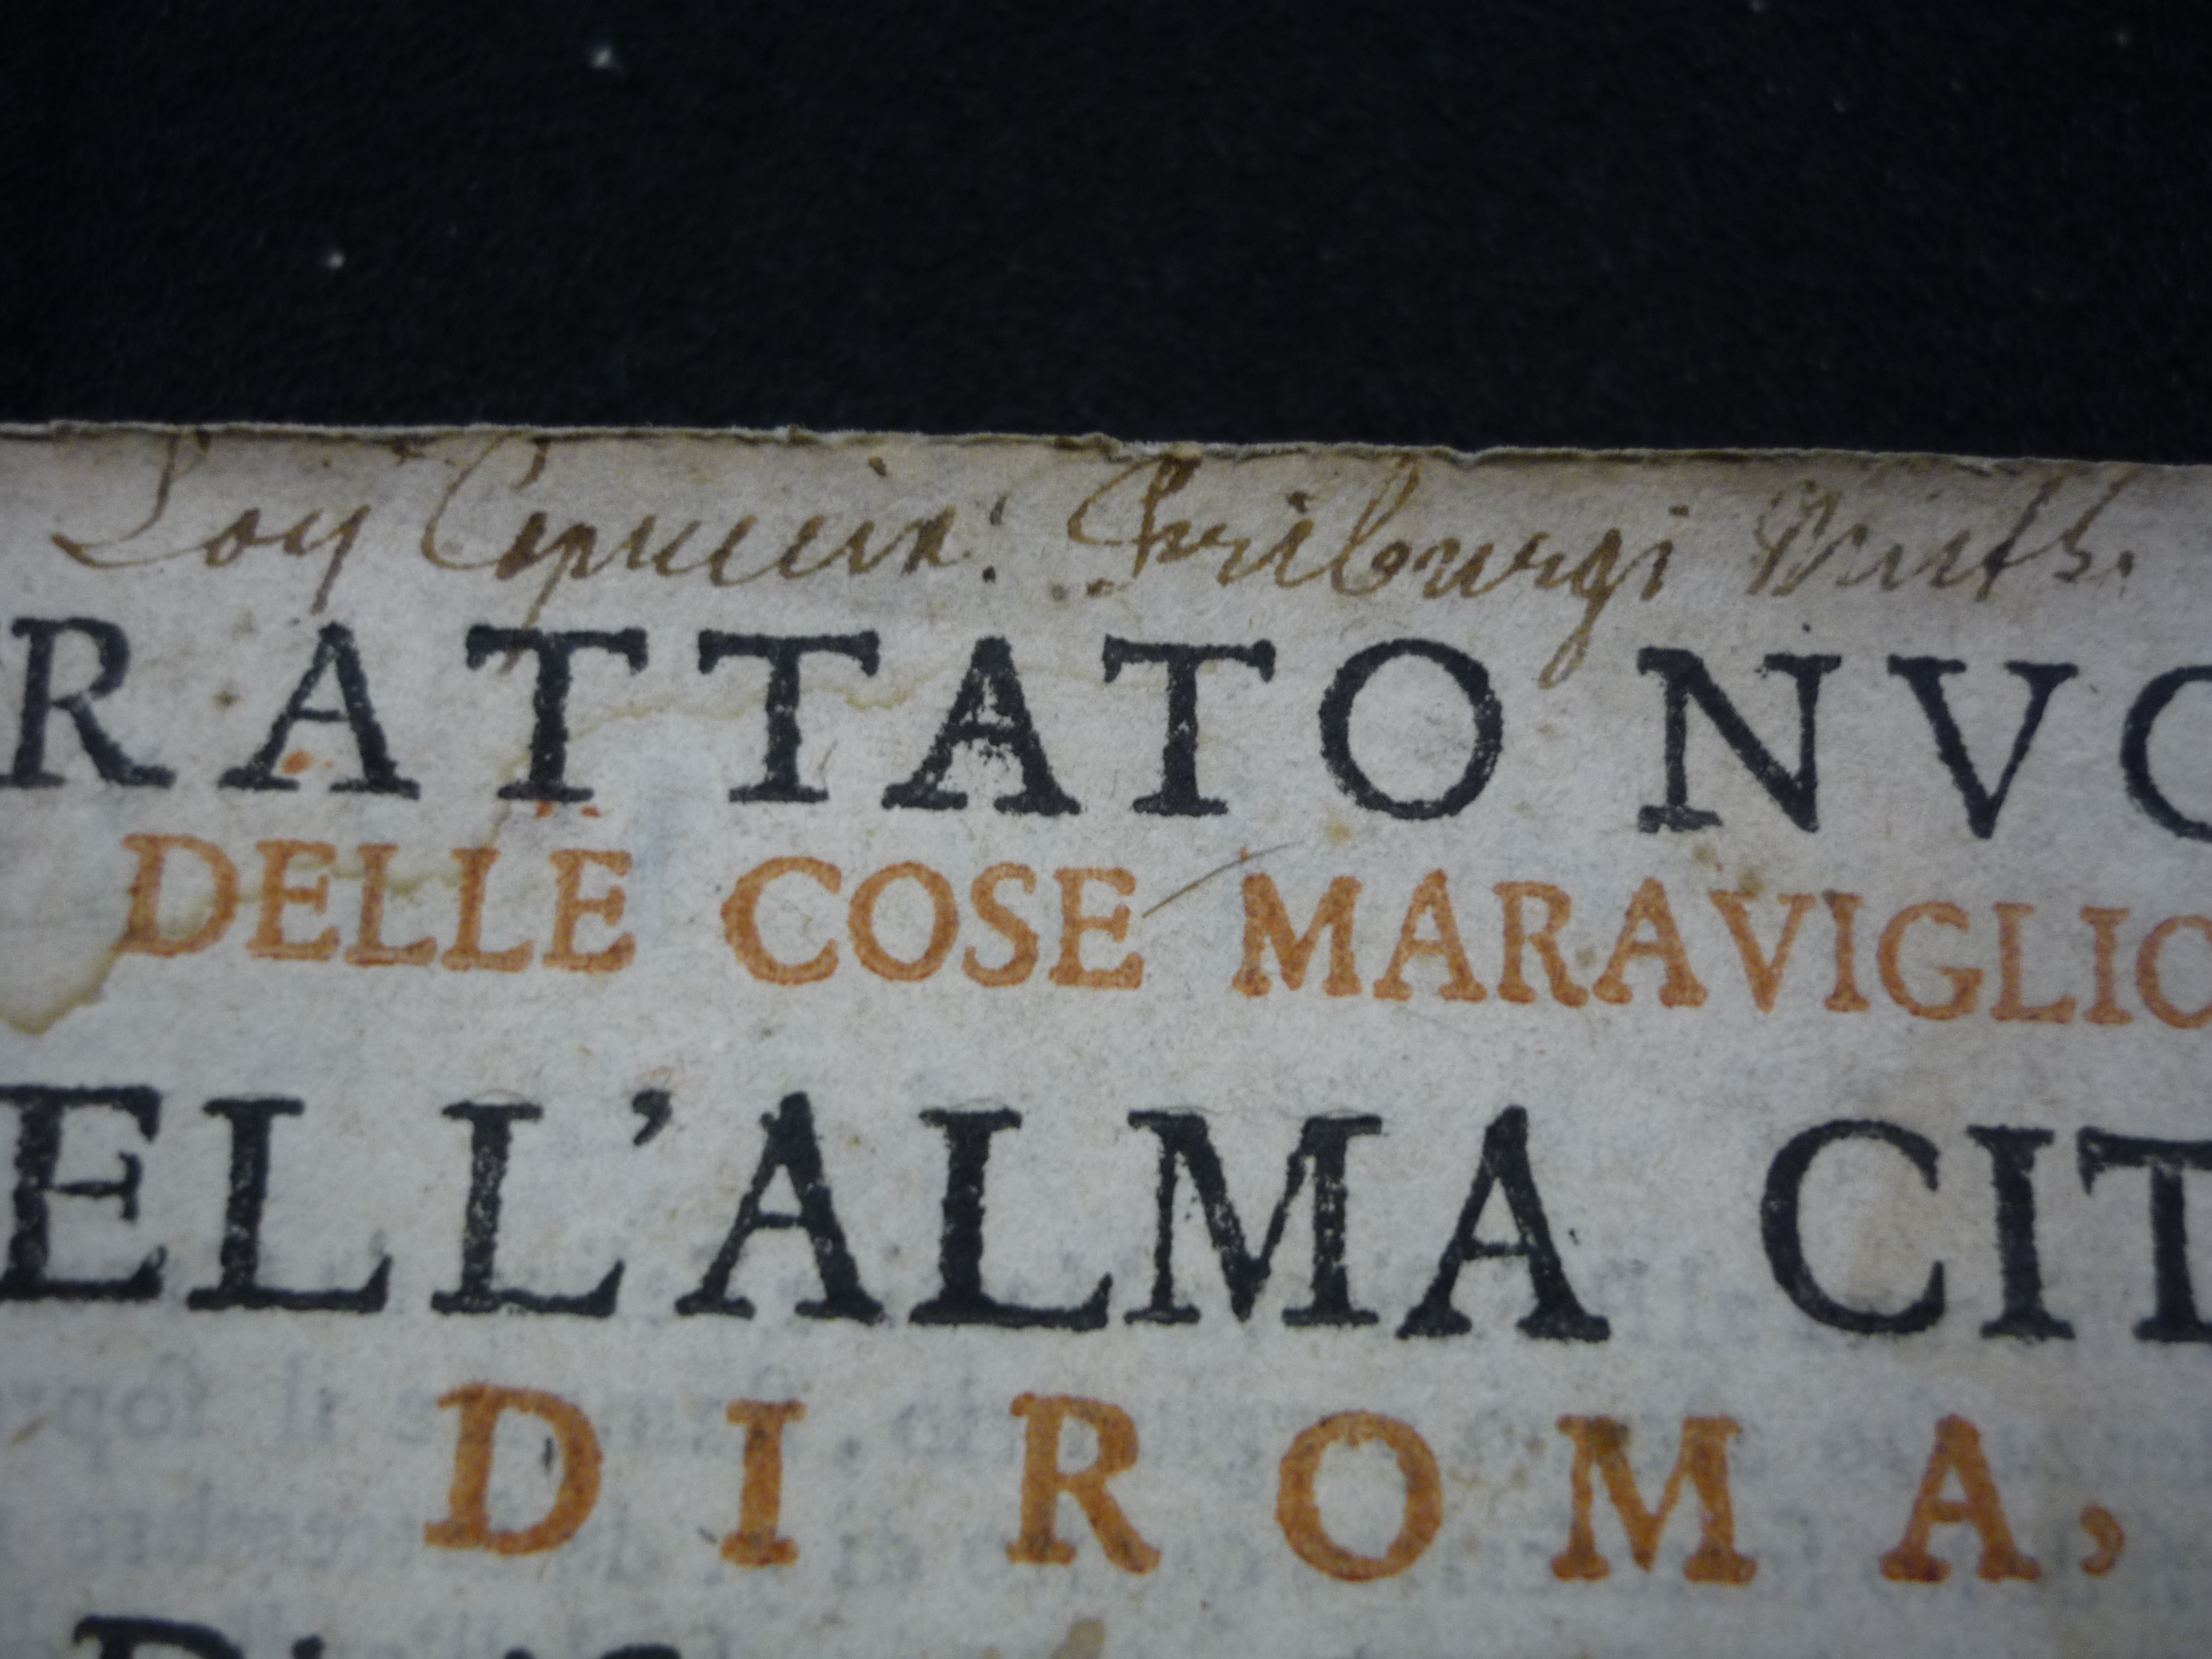 Loci Capucin: Friburgi
RATTATO NVO
DELLE COSE MARAVIGLIO
ELL'ALMA CIT
DI ROMA,